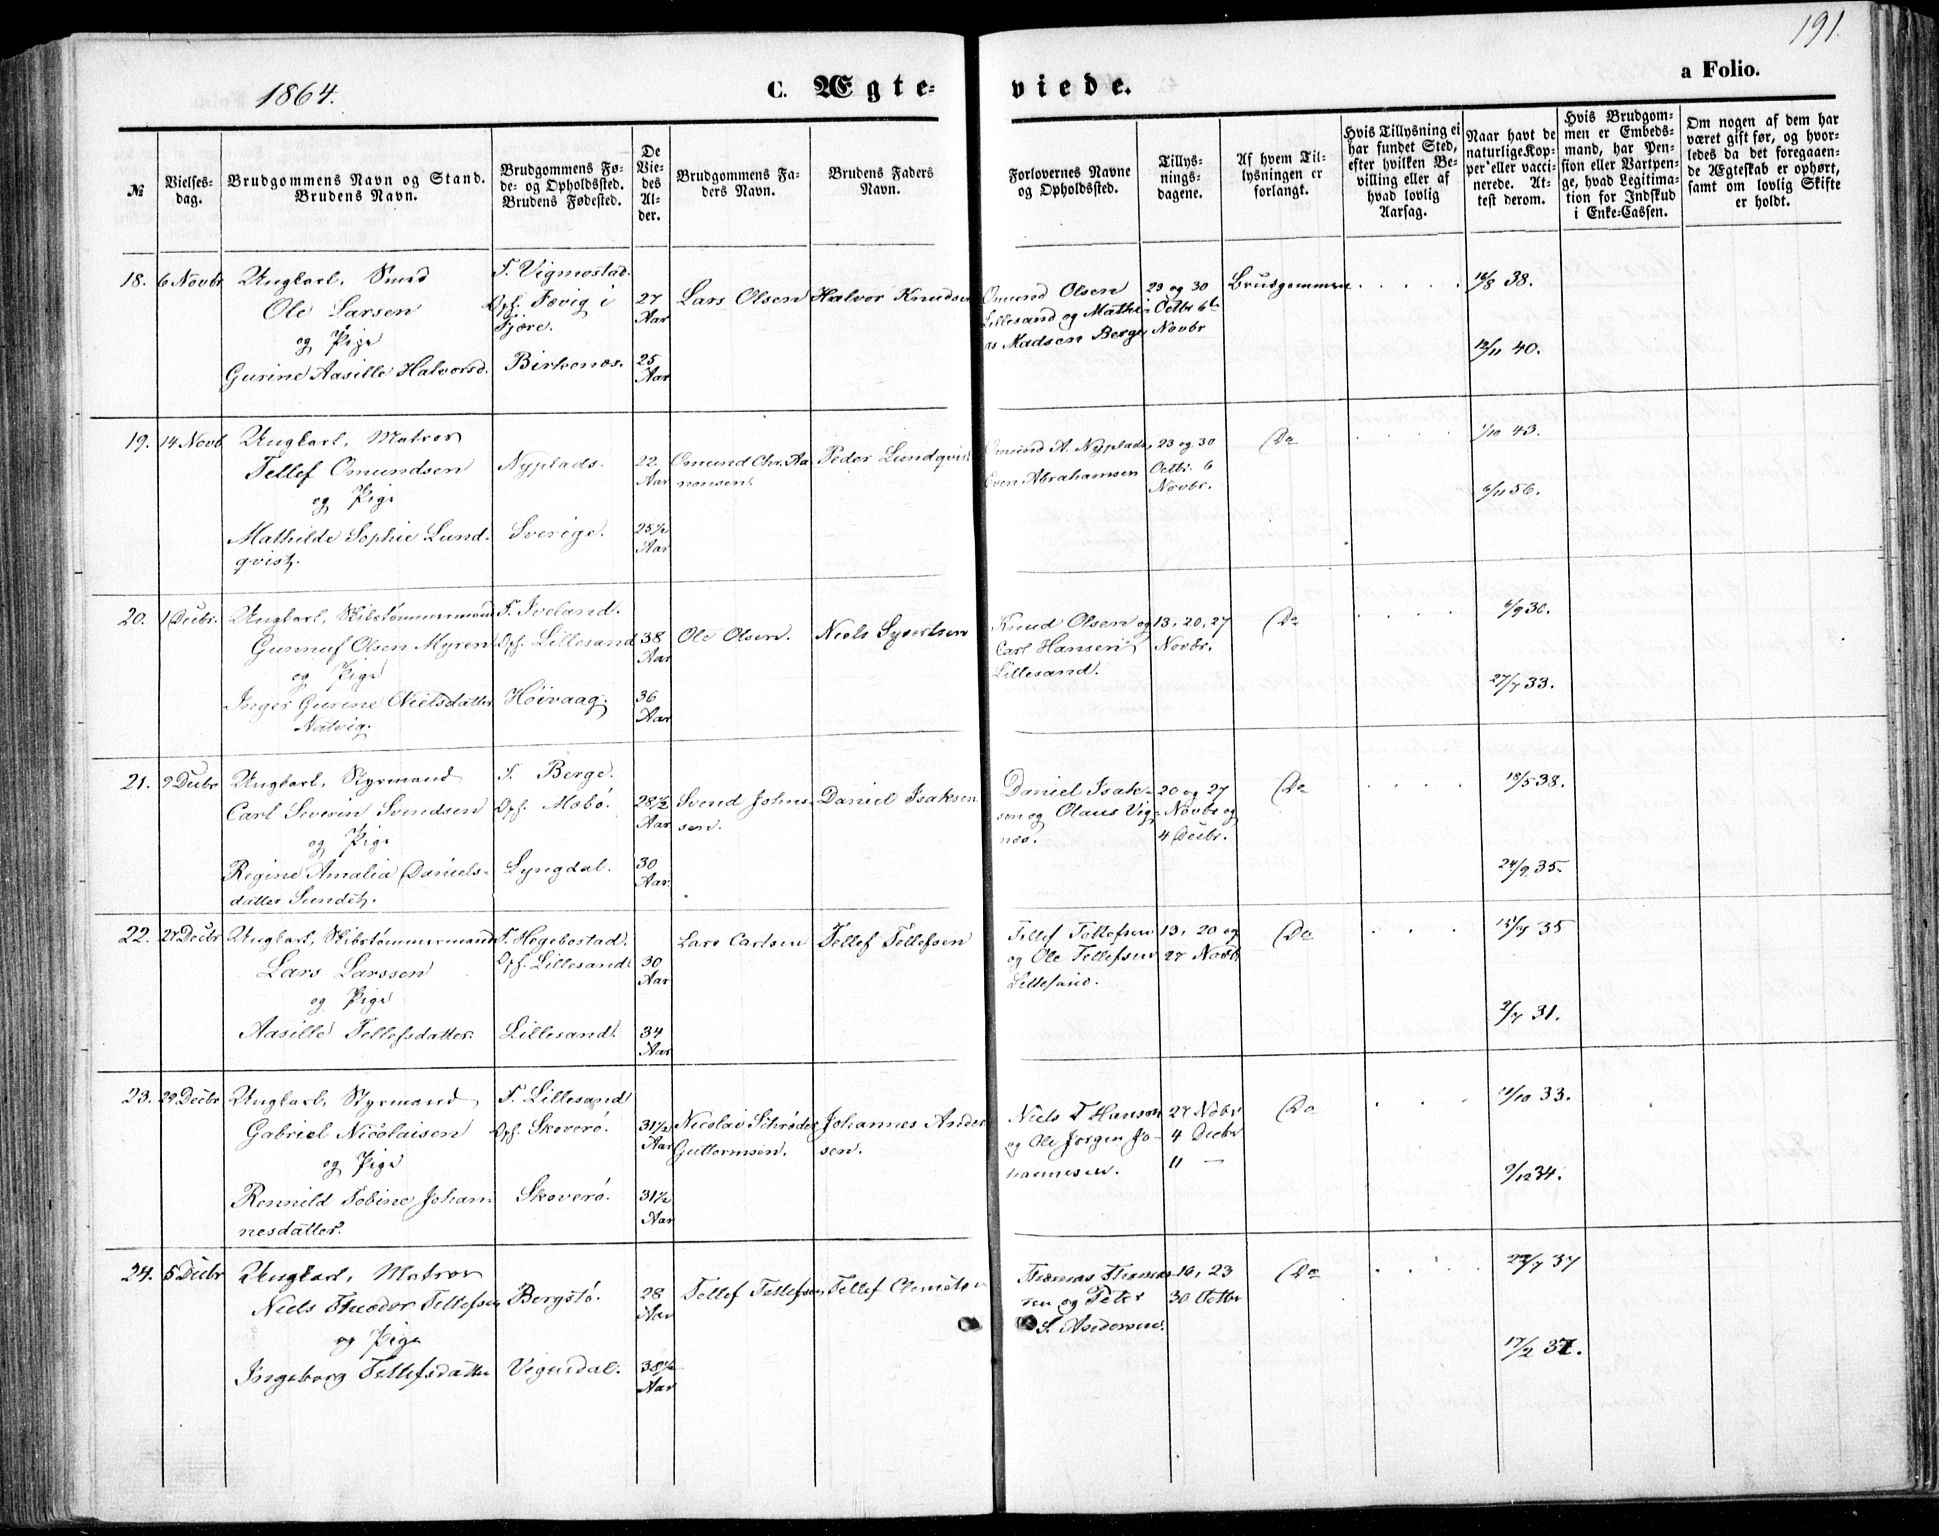 191.
1864.
C. Ægte-
viede.
a Folio.
№
Vielses-
dag.
Brudgommens Navn og Stand.
Brudens Navn.
Brudgommens Fø-
de- og Opholdssted.
Brudens Fødested.
De
Vie-
des
Al-
der.
Brudgommens Fa-
ders Navn.
Brudens Faders
Navn.
Forlovernes Navne
og Opholdssted.
Tillys-
nings-
dagene.
Af hvem Til-
lysningen er
forlangt.
Hvis Tillysning ei
har fundet Sted,
efter hvilken Be-
villing eller af
hvad lovlig
Aarsag.
Naar havt de
naturlige Kop-
per eller vacci-
nerede. At-
test derom.
Hvis Brudgom-
men er Embeds-
mand, har Pen-
sion eller Vartpen-
ge, hvad Legitima-
tion for Indskud
i Enke-Cassen.
Om nogen af dem har
været gift før, og hvor-
ledes da det foregaaen-
de Ægteskab er ophørt,
samt om lovlig Skifte
er holdt.
18.
6 Novbr
Ungkarl, Smed
Ole Larsen
og Pige
Gurine Aasille Halvorsd.
F. Vigmostad.
Oph. Fævig i
Fjære.
Birkenæs.
27
Aar
25
Aar
Lars Olsen
Halvor Knudsen
Omund Olsen
Lillesand og Mathi-
as Madsen Berge
23 og 30
Octbr 6te
Novbr
Brudgommen
18/8 38.
12/11 40.
19.
14 Novb
Ungkarl, Matros
Tellef Omundsen
og Pige
Mathilde Sophie Lund-
qvist.
Nyplads.
Sverige.
22
Aar
25½
Aar
Omund Chr. Aa-
nonsen.
Peder Lundqvist
Omund A. Nyplads,
Even Abrahamsen
23 og 30
Octbr. 6
Novbr.
Do
1/10 43.
6/11 56.
20.
1 Decbr.
Ungkarl, Skibstømmermand
Gunnuf Olsen Myren
og Pige
Inger Gurine Nielsdatter
Natvig.
F. Iveland.
Oph. Lillesand
Høivaag.
38
Aar
36
Aar
Ole Olsen.
Niels Syvertsen
Knud Olsen og
Carl Hansen
Lillesand.
13, 20, 27
Novbr.
Do
6/9 30.
27/7 33.
21.
9 Decbr
Ungkarl, Styrmand
Carl Severin Svendsen
og Pige
Regine Amalia Daniels-
datter Sundet.
F. Berge.
Oph. Mæbø.
Lyngdal.
28½
Aar
30
Aar.
Svend Johns-
sen.
Daniel Isaksen
Daniel Isak-
sen og Olaus Vig-
næs.
20 og 27
Novbr og
4 Decbr.
Do
18/5 38.
24/9 35.
22.
27 Decbr
Ungkarl, Skibstømmermand
Lars Larssen
og Pige
Aasille Tellefsdatter.
F. Hegebostad.
Oph. Lillesand
Lillesand.
30
Aar
34
Aar
Lars Carlsen
Tellef Tellefsen
Tellef Tellefsen
og Ole Tellefsen
Lillesand.
13, 20 og
27 Novbr
Do
15/7 35
2/7 31.
23.
29 Decbr
Ungkarl, Styrmand
Gabriel Nicolaisen
og Pige
Rennild Tobine Johan-
nesdatter.
F. Lillesand
Oph. Skoverø.
Skoverø.
31½
Aar
31½
Aar
Nicolai Schrøder
Guttormsen.
Johannes Ander-
sen.
Niels T Hansen
og Ole Jørgen Jo-
hannesen.
27 Nvbr
4 Decbr
11 —
Do
33.
9/12 34.
24.
5 Decbr
Ungkarl, Matros
Niels Theodor Tellefsen
og Pige
Ingeborg Tellefsdatter
Bergstø.
Vegusdal.
28
Aar
38½
Aar
Tellef Tellefsen
Tellef
Thomas Thomas-
sen og Peter
S. Andersen.
16, 23
30 Octbr
Do
22/7 37
17/2 37.